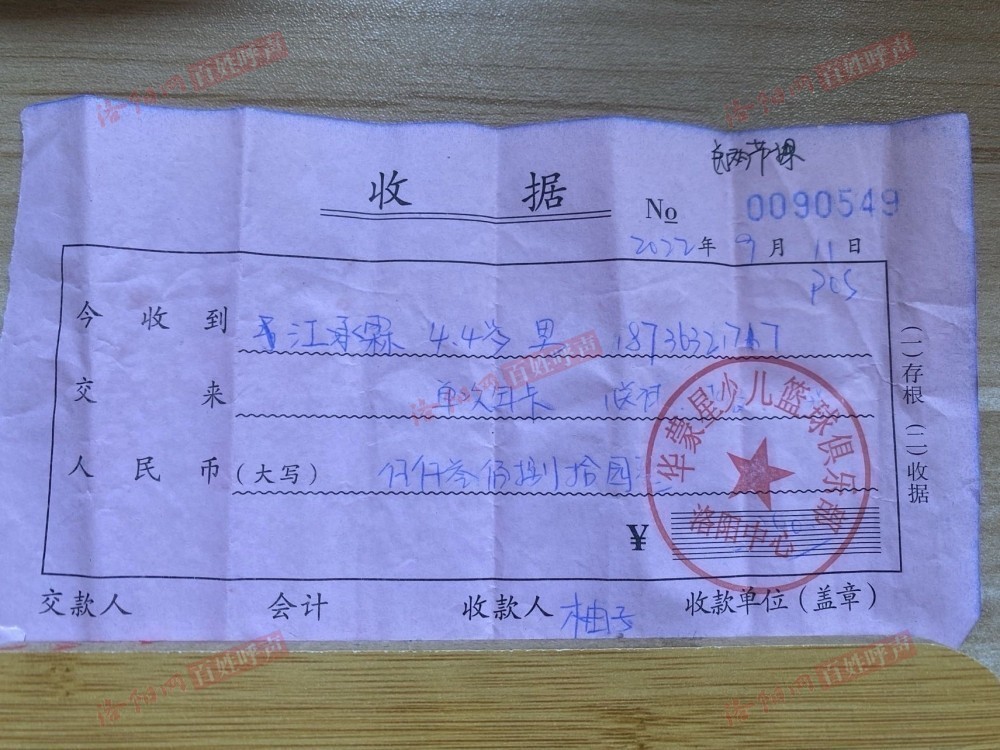 洛阳网 百姓呼声
洛阳网 百姓呼声
两节课
收据
No 0090549
2022年9月11日
pos
今收到 江承霖 4.4岁 男
交来 单次年卡
人民币(大写) 仟叁佰捌拾圆
¥
华蒙星少儿篮球俱乐部
洛阳中心
(一)存根 (二)收据
交款人 会计 收款人 柚子 收款单位(盖章)
洛阳网 百姓呼声
洛阳网 百姓呼声
洛阳网 百姓呼声